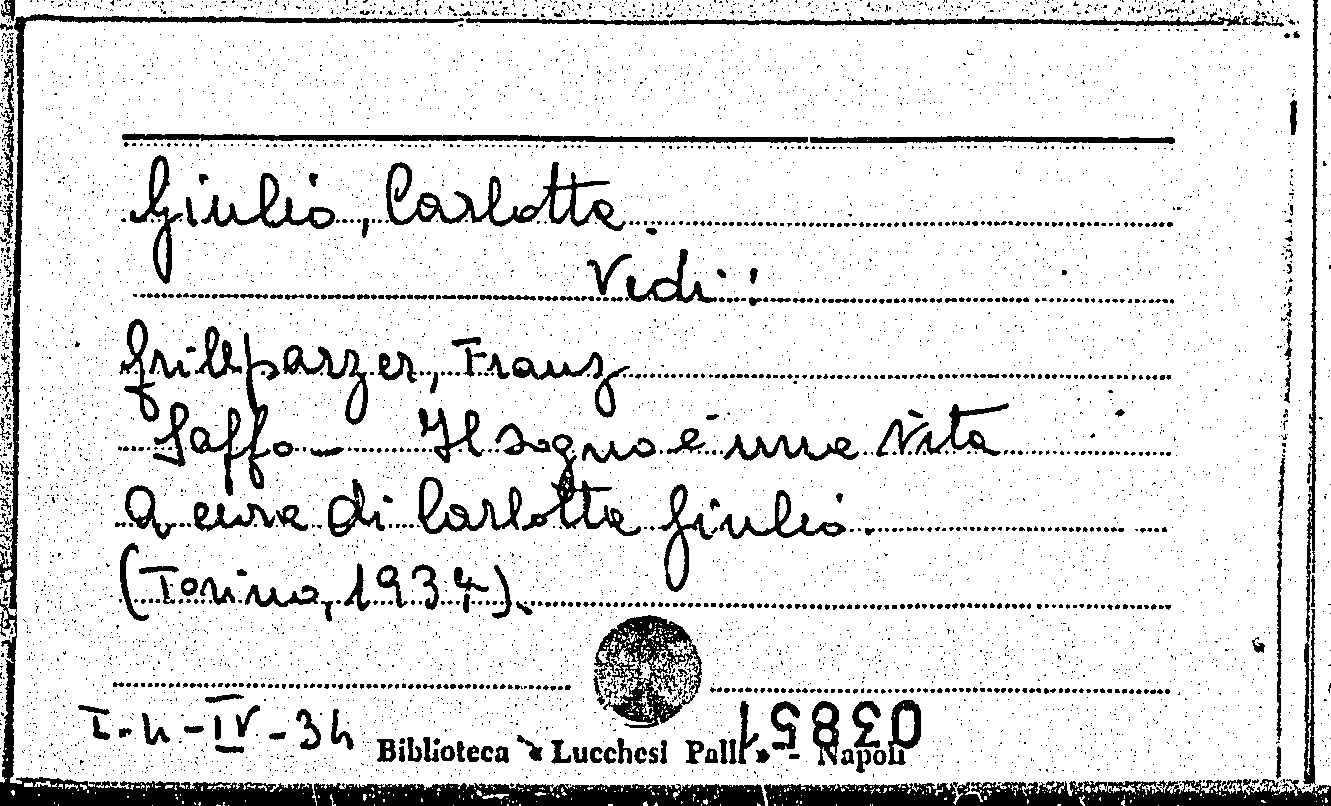 Giulio, Carlotta.
Vedi:
Grillparzer, Franz
Saffo - Il sogno è una vita
a cura di Carlotta Giulio.
(Torino, 1934).
I-4-IV-34
Biblioteca « Lucchesi Palli » - Napoli
03851